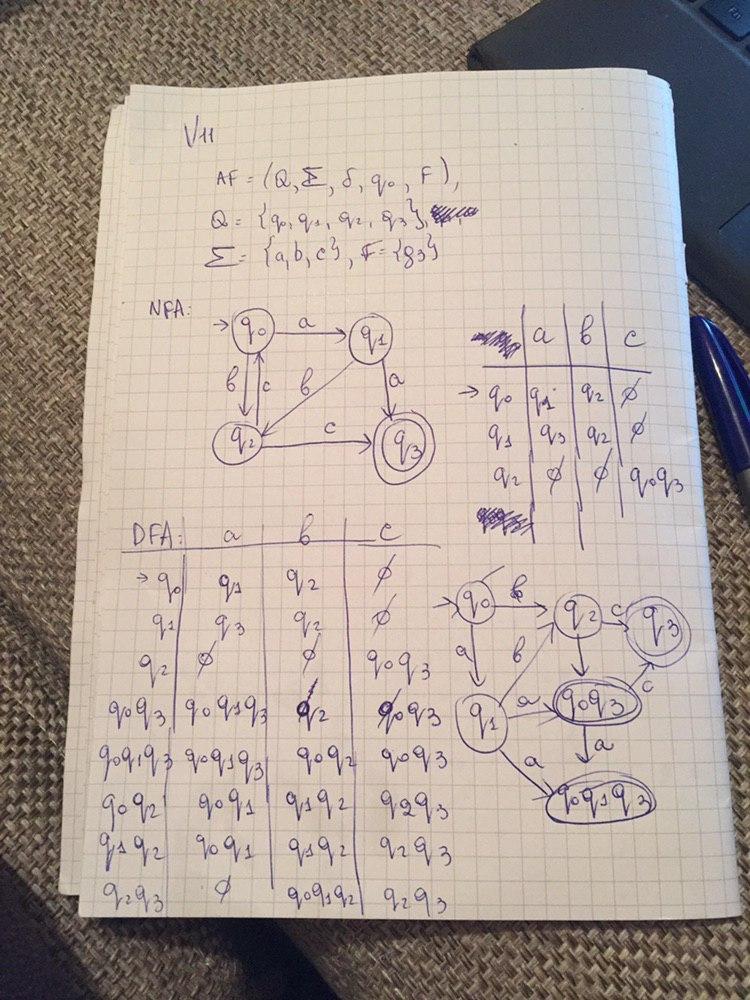 V11
AF = (Q, Σ, δ, q0, F),
Q = {q0, q1, q2, q3},
Σ = {a, b, c}, F = {q3}
NFA:
→ q0 a q1
b c b a
q2 c q3
a b c
→ q0 q1 q2 ∅
q1 q3 q2 ∅
q2 ∅ ∅ q0q3
DFA: a b c
→ q0 q1 q2 ∅
q1 q3 q2 ∅
q2 ∅ ∅ q0q3
q0q3 q0q1q3 q2 q0q3
q0q1q3 q0q1q3 q0q2 q0q3
q0q2 q0q1 q1q2 q2q3
q1q2 q0q1 q1q2 q2q3
q2q3 ∅ q0q1q2 q2q3
→ q0 b q2 c q3
a b
q1 a q0q3 c
a a
q0q1q3